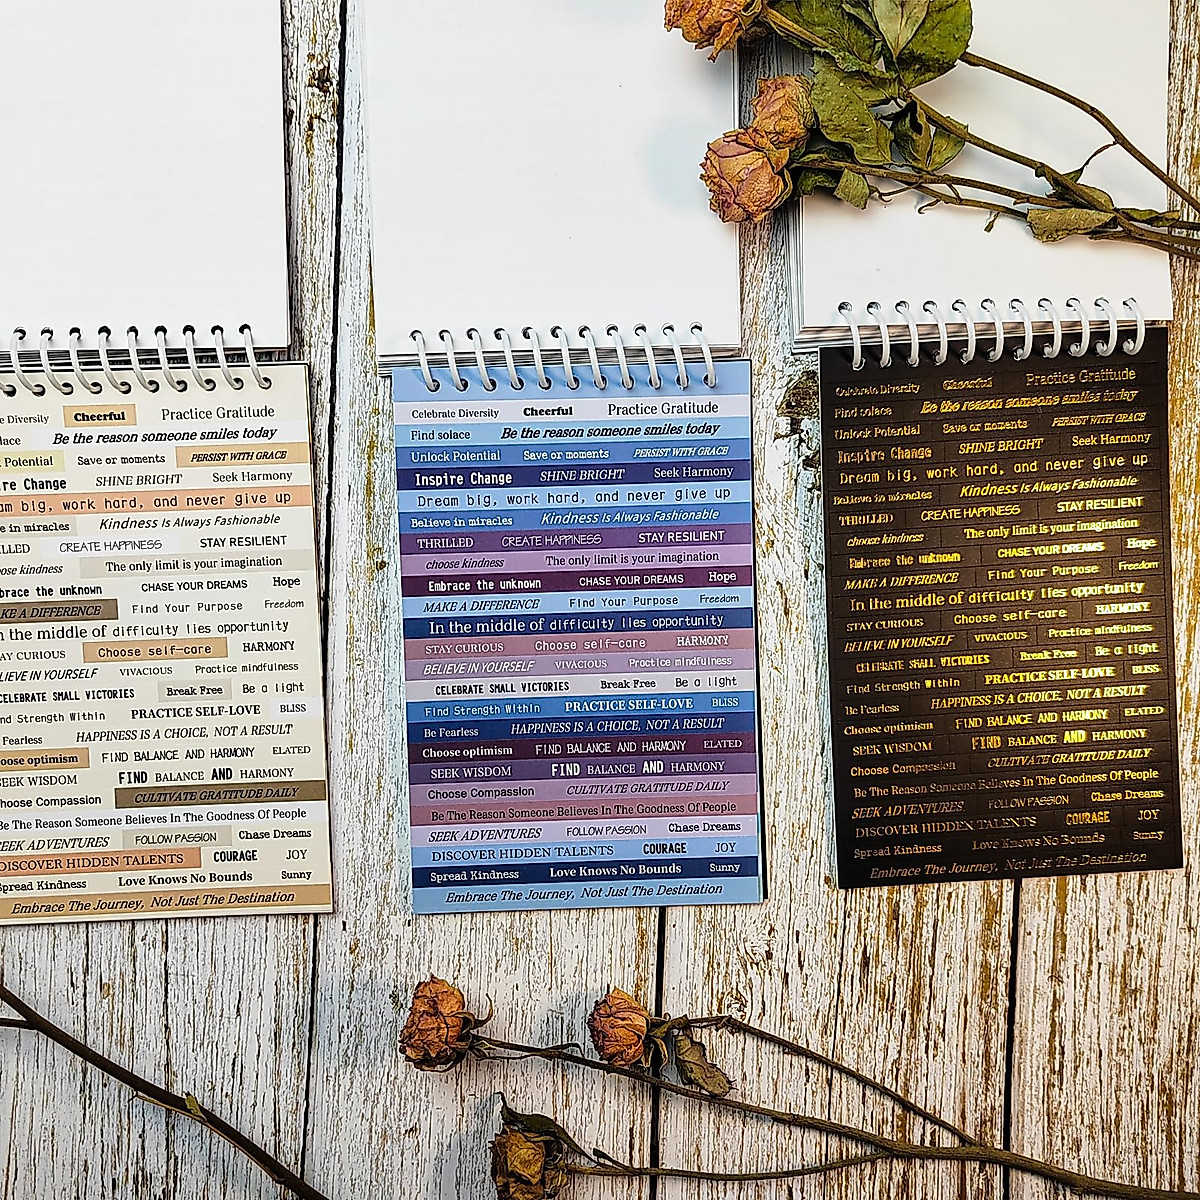 e Diversity Cheerful Practice Gratitude
lace Be the reason someone smiles today
k Potential Save or moments PERSIST WITH GRACE
re Change SHINE BRIGHT Seek Harmony
am big, work hard, and never give up
e in miracles Kindness Is Always Fashionable
LLED CREATE HAPPINESS STAY RESILIENT
oose kindness The only limit is your imagination
brace the unknown CHASE YOUR DREAMS Hope
KE A DIFFERENCE Find Your Purpose Freedom
n the middle of difficulty lies opportunity
AY CURIOUS Choose self-care HARMONY
LIEVE IN YOURSELF VIVACIOUS Practice mindfulness
CELEBRATE SMALL VICTORIES Break Free Be a light
nd Strength Within PRACTICE SELF-LOVE BLISS
Fearless HAPPINESS IS A CHOICE, NOT A RESULT
oose optimism FIND BALANCE AND HARMONY ELATED
SEEK WISDOM FIND BALANCE AND HARMONY
hoose Compassion CULTIVATE GRATITUDE DAILY
Be The Reason Someone Believes In The Goodness Of People
EEK ADVENTURES FOLLOW PASSION Chase Dreams
DISCOVER HIDDEN TALENTS COURAGE JOY
Spread Kindness Love Knows No Bounds Sunny
Embrace The Journey, Not Just The Destination
Celebrate Diversity Cheerful Practice Gratitude
Find solace Be the reason someone smiles today
Unlock Potential Save or moments PERSIST WITH GRACE
Inspire Change SHINE BRIGHT Seek Harmony
Dream big, work hard, and never give up
Believe in miracles Kindness Is Always Fashionable
THRILLED CREATE HAPPINESS STAY RESILIENT
choose kindness The only limit is your imagination
Embrace the unknown CHASE YOUR DREAMS Hope
MAKE A DIFFERENCE Find Your Purpose Freedom
In the middle of difficulty lies opportunity
STAY CURIOUS Choose self-care HARMONY
BELIEVE IN YOURSELF VIVACIOUS Practice mindfulness
CELEBRATE SMALL VICTORIES Break Free Be a light
Find Strength Within PRACTICE SELF-LOVE BLISS
Be Fearless HAPPINESS IS A CHOICE, NOT A RESULT
Choose optimism FIND BALANCE AND HARMONY ELATED
SEEK WISDOM FIND BALANCE AND HARMONY
Choose Compassion CULTIVATE GRATITUDE DAILY
Be The Reason Someone Believes In The Goodness Of People
SEEK ADVENTURES FOLLOW PASSION Chase Dreams
DISCOVER HIDDEN TALENTS COURAGE JOY
Spread Kindness Love Knows No Bounds Sunny
Embrace The Journey, Not Just The Destination
Celebrate Diversity Cheerful Practice Gratitude
Find solace Be the reason someone smiles today
Unlock Potential Save or moments PERSIST WITH GRACE
Inspire Change SHINE BRIGHT Seek Harmony
Dream big, work hard, and never give up
Believe in miracles Kindness Is Always Fashionable
THRILLED CREATE HAPPINESS STAY RESILIENT
choose kindness The only limit is your imagination
Embrace the unknown CHASE YOUR DREAMS Hope
MAKE A DIFFERENCE Find Your Purpose Freedom
In the middle of difficulty lies opportunity
STAY CURIOUS Choose self-care HARMONY
BELIEVE IN YOURSELF VIVACIOUS Practice mindfulness
CELEBRATE SMALL VICTORIES Break Free Be a light
Find Strength Within PRACTICE SELF-LOVE BLISS
Be Fearless HAPPINESS IS A CHOICE, NOT A RESULT
Choose optimism FIND BALANCE AND HARMONY ELATED
SEEK WISDOM FIND BALANCE AND HARMONY
Choose Compassion CULTIVATE GRATITUDE DAILY
Be The Reason Someone Believes In The Goodness Of People
SEEK ADVENTURES FOLLOW PASSION Chase Dreams
DISCOVER HIDDEN TALENTS COURAGE JOY
Spread Kindness Love Knows No Bounds Sunny
Embrace The Journey, Not Just The Destination